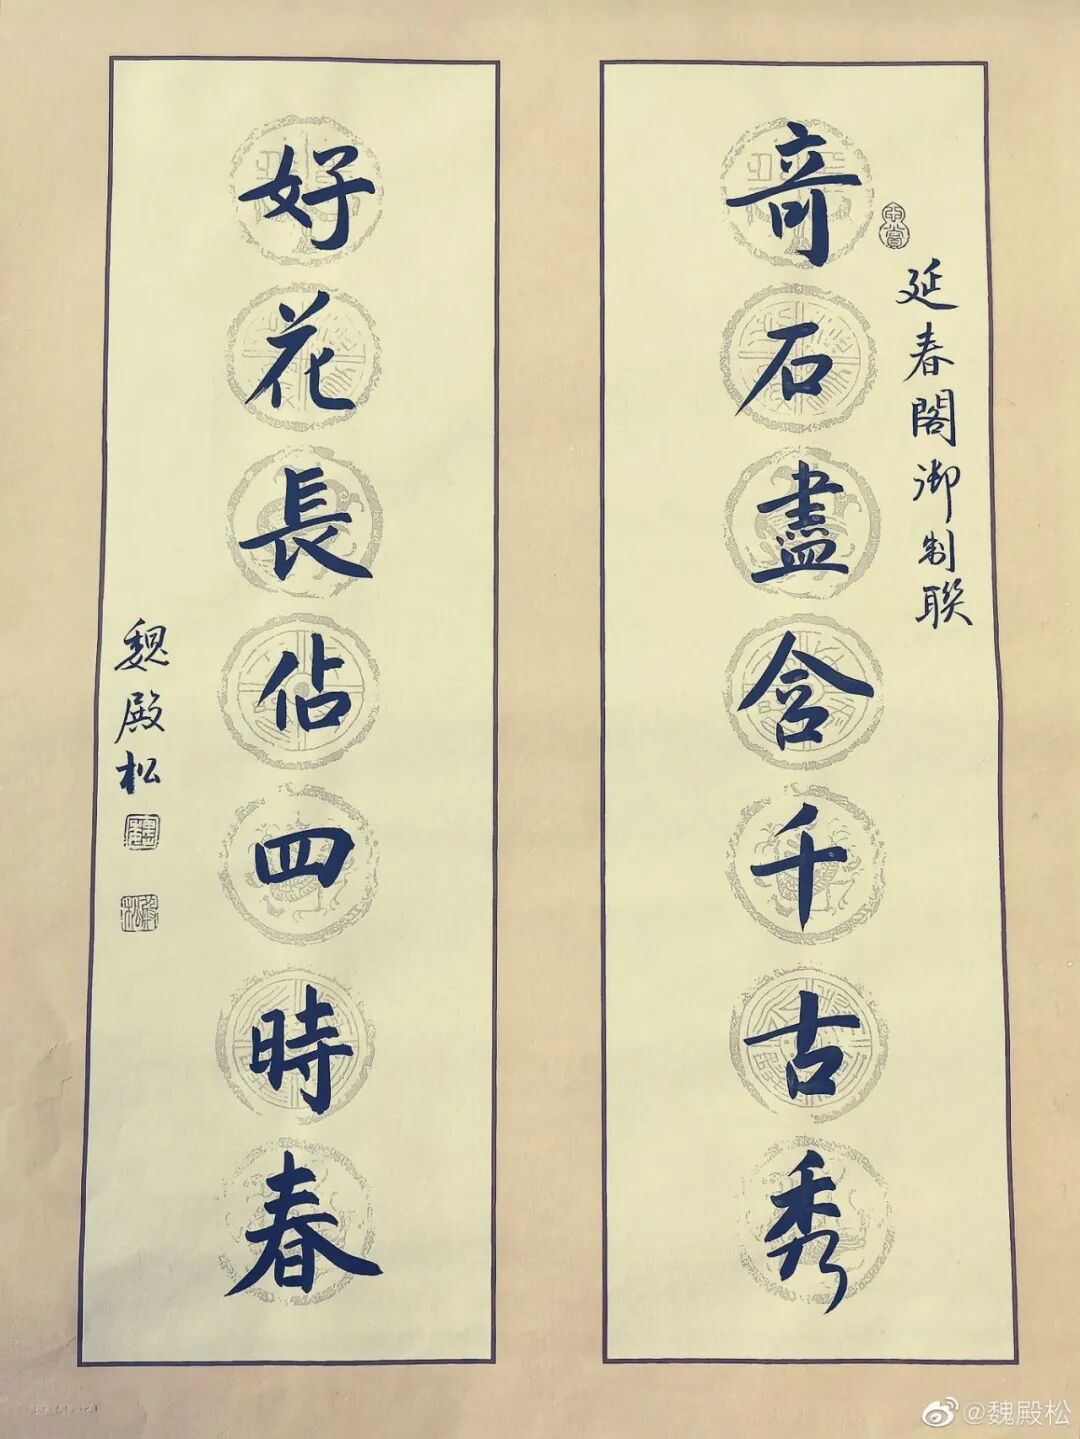 延春閣御制聯
奇石盡含千古秀
好花長佔四時春
魏殿松
@魏殿松